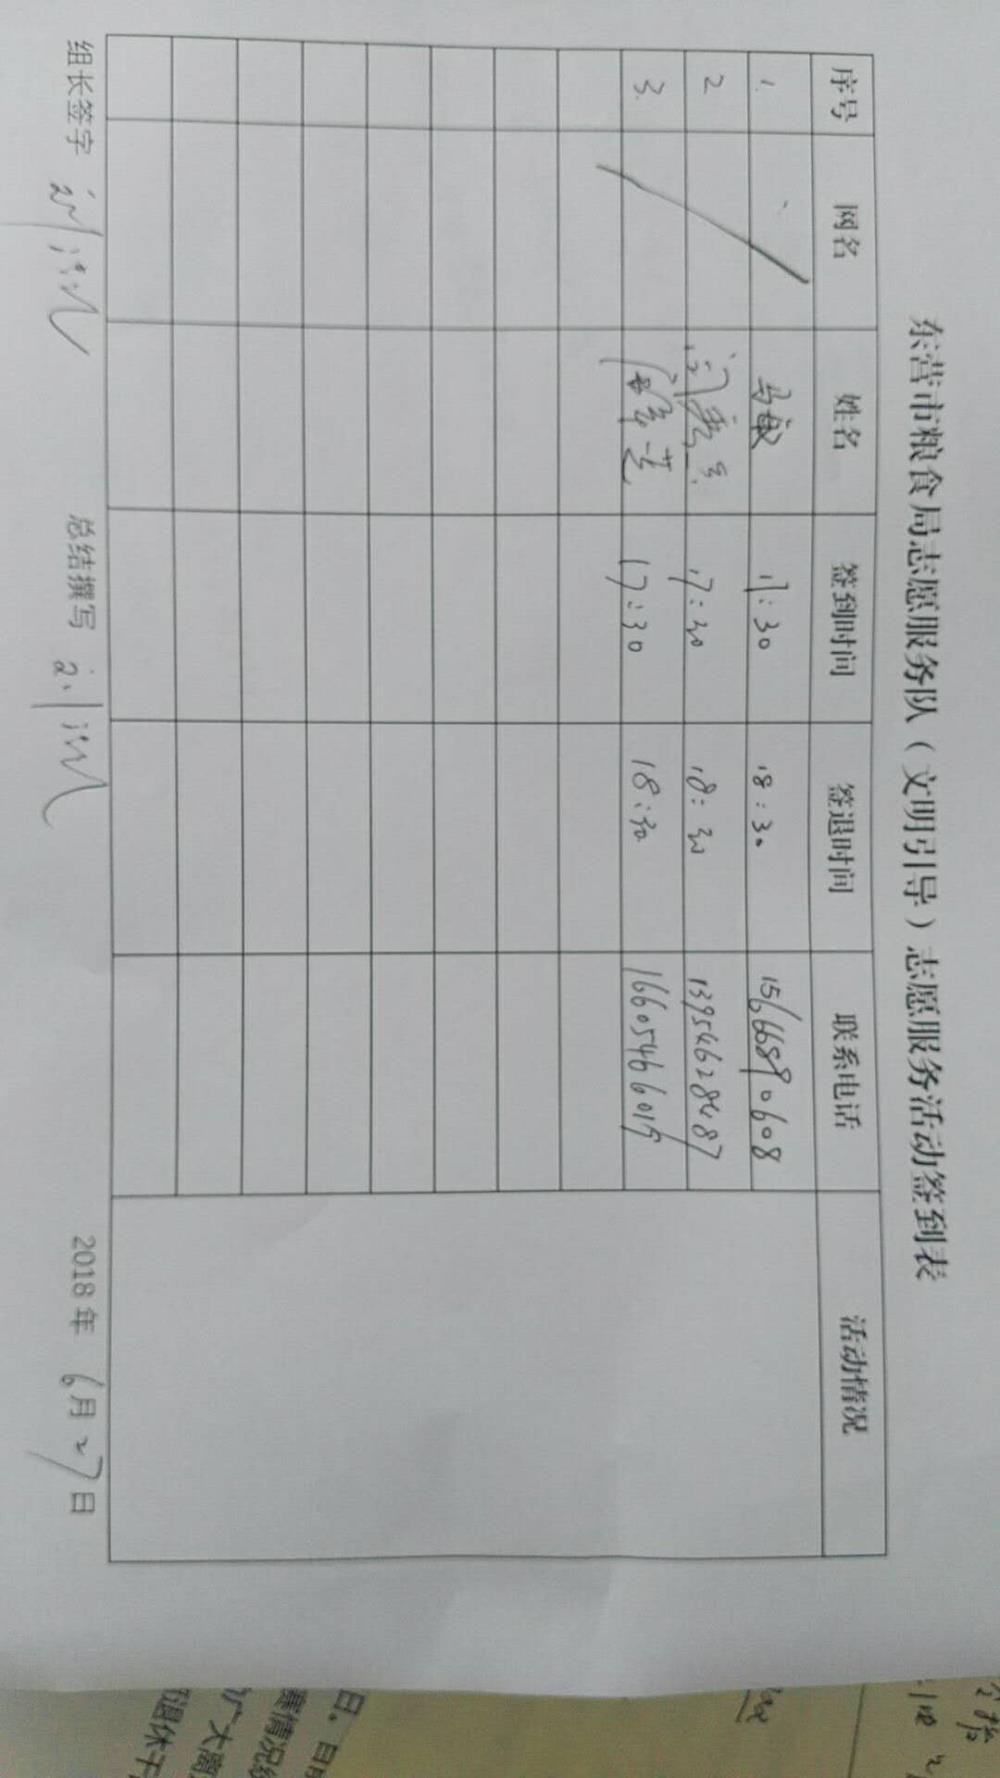 东营市粮食局志愿服务队（文明引导）志愿服务活动签到表
序号 网名 姓名 签到时间 签退时间 联系电话 活动情况
1. 马敏 17:30 18:30 15666890608
2 17:30 18:30 13954628487
3. 17:30 18:30 16605466019
组长签字 总结撰写 2018年 6月27日
日。日
赛情况
广大离
退休干